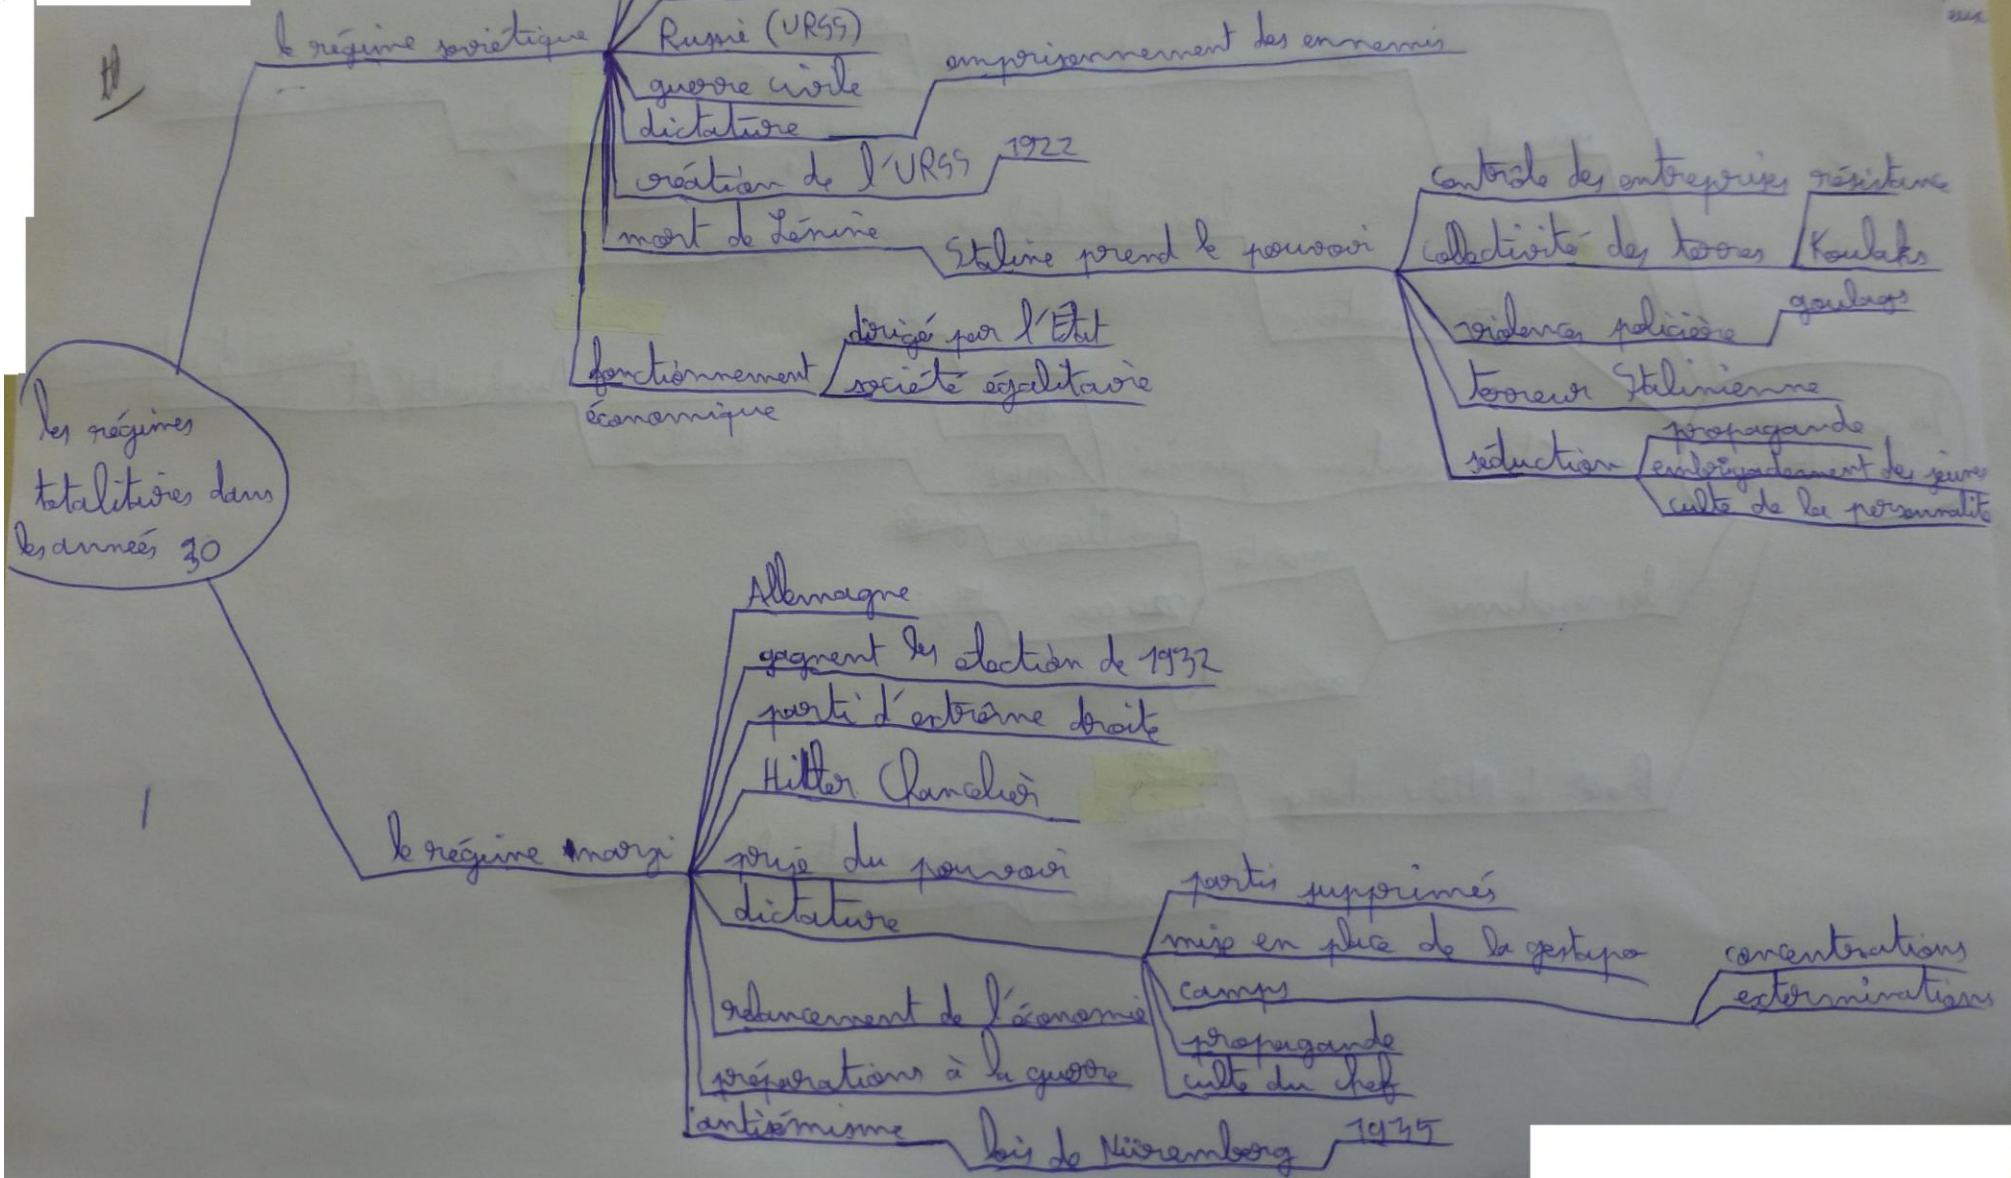 le régime soviétique
Russie (URSS)
guerre civile
dictature
emprisonnement des ennemis
création de l'URSS
1922
mort de Lénine
Staline prend le pouvoir
contrôle des entreprises
résistance
collectivité des terres
Koulaks
violences policière
goulags
terreur Stalinienne
séduction
propagande
embrigadement des jeunes
culte de la personnalité
fonctionnement
économique
dirigé par l'Etat
société égalitaire
les régimes
totalitires dans
les années 30
le régime nazi
Allemagne
gagnent les élection de 1932
parti d'extrême droite
Hitler Chancelier
prise du pouvoir
dictature
partis supprimés
mise en place de la gestapo
camps
concentrations
exterminations
propagande
culte du chef
relancement de l'économie
préparations à la guerre
antisémisme
lois de Nüremberg
1935